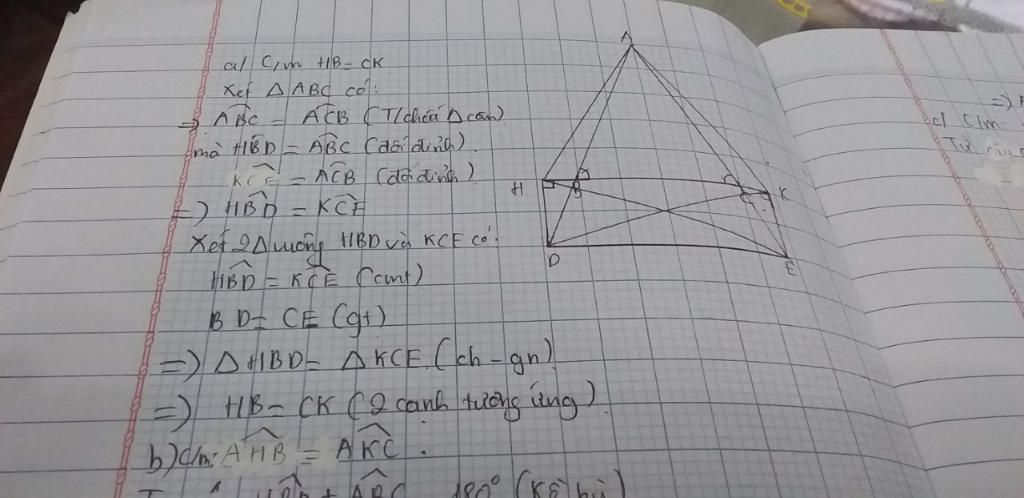 a/ C/m HB = CK
Xét △ ABC có:
=> ABC = ACB (T/chất △ cân)
mà HBD = ABC (đối đỉnh).
KCE = ACB (đối đỉnh)
=> HBD = KCE
Xét 2 △ vuông HBD và KCE có:
HBD = KCE (cmt)
BD = CE (gt)
=> △ HBD = △ KCE (ch - gn)
=> HB = CK (2 cạnh tương ứng)
b) c/m: AHB = AKC.
HBD + ABC 180° (Kề bù)
A
H
B
C
K
D
E
=>
c/ C/m:
Từ